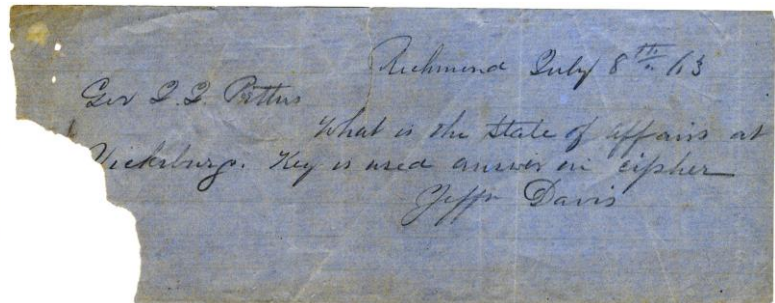 Richmond July 8th /63
Gov J.J. Pettus
What is the State of affairs at
Vicksburg. Key is used answer in cipher
Jeffn Davis